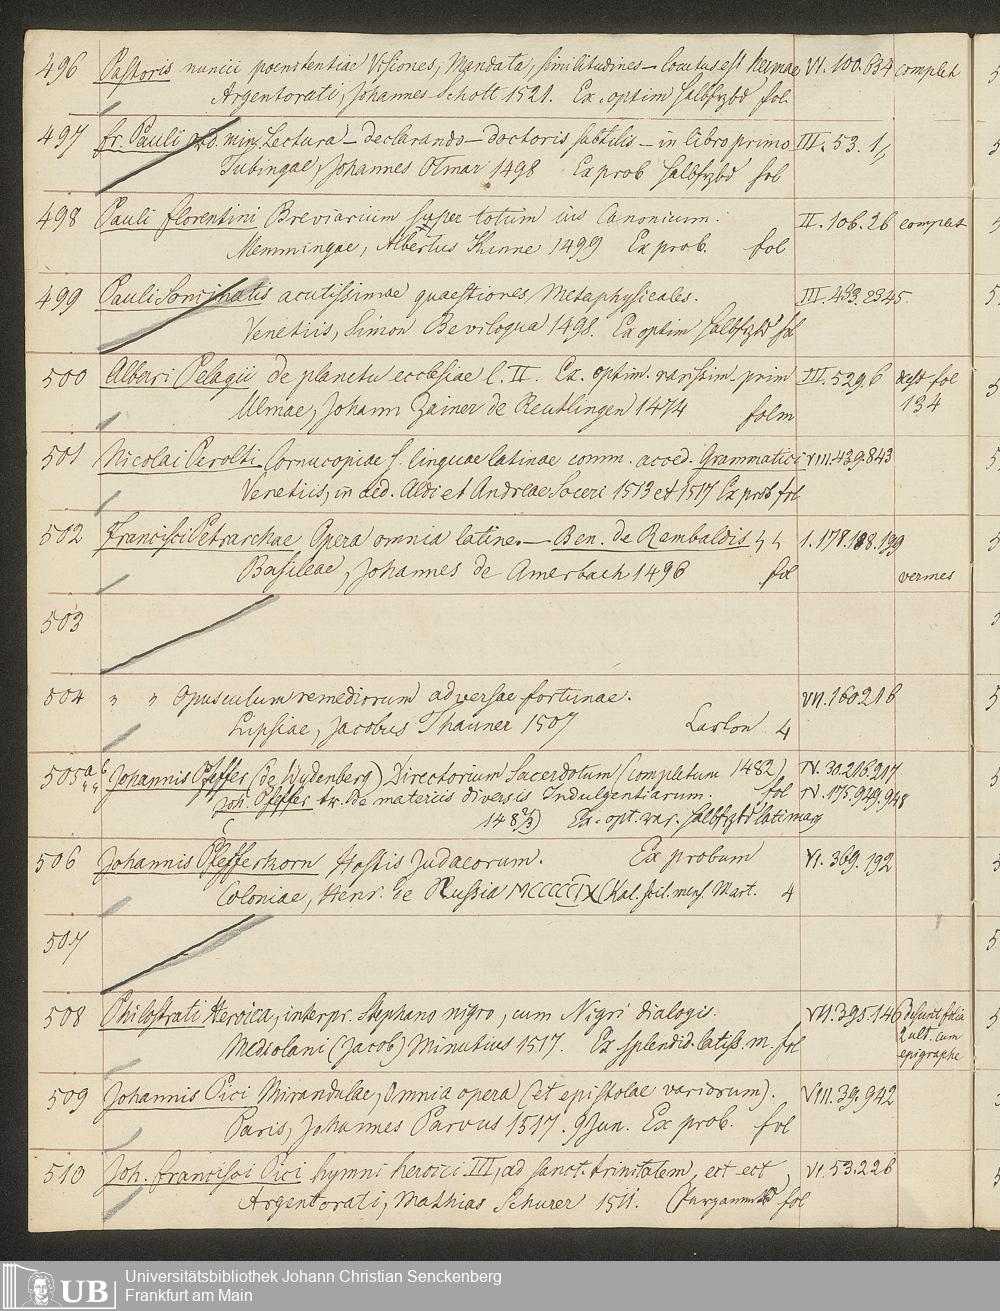 496 Pastoris nuncii poenitentiae Visiones, Mandata, similitudines – locutus est hermae VI. 100.634 complet
Argentorati, Johannes Schott 1521. Ex. optim halbfrzbd fol.
497 fr. Pauli ord. min. Lectura – declarando – doctoris subtilis – in libro primo III. 53. 1
Tubingae, Johannes Otmar 1498 Ex prob halbfrzbd fol
498 Pauli florentini Breviarium super totum ius Canonicum. II. 106. 26 complet
Memmingae, Albertus Kunne 1499 Ex prob. fol
499 Pauli Soncinatis acutissimae quaestiones Metaphysicales. III. 493. 2345.
Venetiis, Simon Beviloqua 1498. Ex optim halbfrzbd fol
500 Alvari Pelagii de planctu ecclesiae l. II. Ex. optim. rarissim. prim III. 529. 6 fol
Ulmae, Johann Zainer de Reutlingen 1474 folm 134
501 Nicolai Perotti Cornucopiae s. linguae latinae comm. acced. Grammatici VIII. 439. 843
Venetiis, in aed. Aldi et Andreae Soceri 1513 et 1517 Ex prob fol
502 Francisci Petrarchae Opera omnia latine. — Ben. de Rembaldis 1. 178. 188. 199
Basileae, Johannes de Amerbach 1496 fol vermes
503
504 " " Opusculum remediorum adversae fortunae. VII. 160. 216
Lipsiae, Jacobus Thanner 1507 Carton 4
505 a b Johannis Pfeffer (de Wydenberg) Directorium Sacerdotum (completum 1482) fol IV. 30. 216. 217
Joh. Pfeffer tr. de materiis diversis Indulgentiarum. IV. 175. 949. 948
1482/3) Ex. opt. rar. halbfrzbd lati marg
506 Johannis Pfefferkorn Hostis Judaeorum. Ex probum VI. 369. 192
Coloniae, Henr. de Nussia MCCCCCIX (Kal. scil. mens. Mart. 4
507
508 Philostrati Heroica, interpr. Stephano nigro, cum Nigri dialogis. VII. 395. 146 desunt folia
Mediolani (Jacob) Minutius 1517. Ex splendid. latiss. m. fol 2 ult. cum
epigraphe
509 Johannis Pici Mirandulae, Omnia opera (et epistolae variorum). VIII. 39. 942
Paris, Johannes Parvus 1517. 9 Jun. Ex prob. fol
510 Joh. francisci Pici hymni heroici III, ad sanct. trinitatem, ect ect VI 53. 226
Argentorati, Mathias Schurer 1511. fol
UB Universitätsbibliothek Johann Christian Senckenberg
Frankfurt am Main